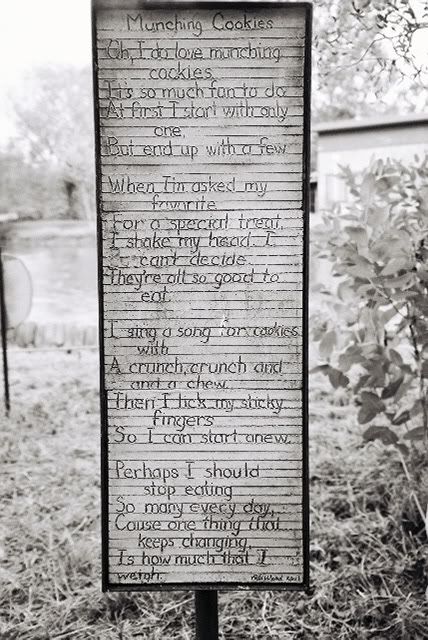 Munching Cookies
Oh, I do love munching
cookies
It's so much fun to do
At first I start with only
one,
But end up with a few
When I'm asked my
favorite
For a special treat,
I shake my head. I
can't decide
They're all so good to
eat.
I sing a song for cookies
with
A crunch, crunch and
and a chew.
Then I lick my sticky
fingers
So I can start anew.
Perhaps I should
stop eating
So many every day,
Cause one thing that
keeps changing,
Is how much that I
weigh.